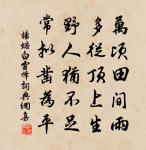 萬頃田間雨
多從頂上生
野人猶不足
常擬鑿為平
楊蟠白雲峰詞典網集